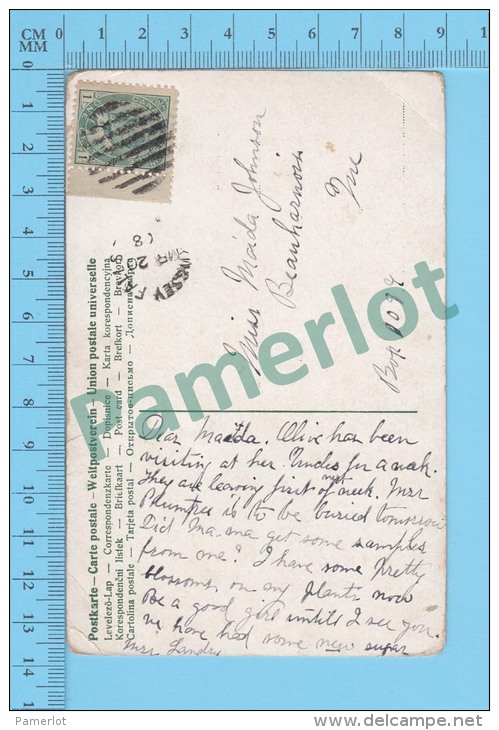 CM 0 1 2 3 4 5 6 7 8 9 1
MM
0
1
2
3
4
5
6
7
8
9
10
11
12
13
14
1 1
MR 20
8
Miss Maida Johnson
Beauharnois
Que
Box 1099
Postkarte — Carte postale — Weltpostverein — Union postale universelle
Levelező-Lap — Correspondenzkarte — Dopisnice — Karta korespondencyjna
Korespondenční lístek — Briefkaart — Post card — Brefkort — Brevkort
Cartolina postale — Tarjeta postal — Открытое письмо — Дописна
Dear Maida. Olive has been
visiting at her Uncles for a week.
They are leaving first of next week. Mrs
Plumtree is to be buried tomorrow
Did Ma. ma get some samples
from me? I have some pretty
blossoms on my plants now
Be a good girl until I see you.
we have had some new sugar
Mrs Landry
Pamerlot
Pamerlot
Pamerlot.com